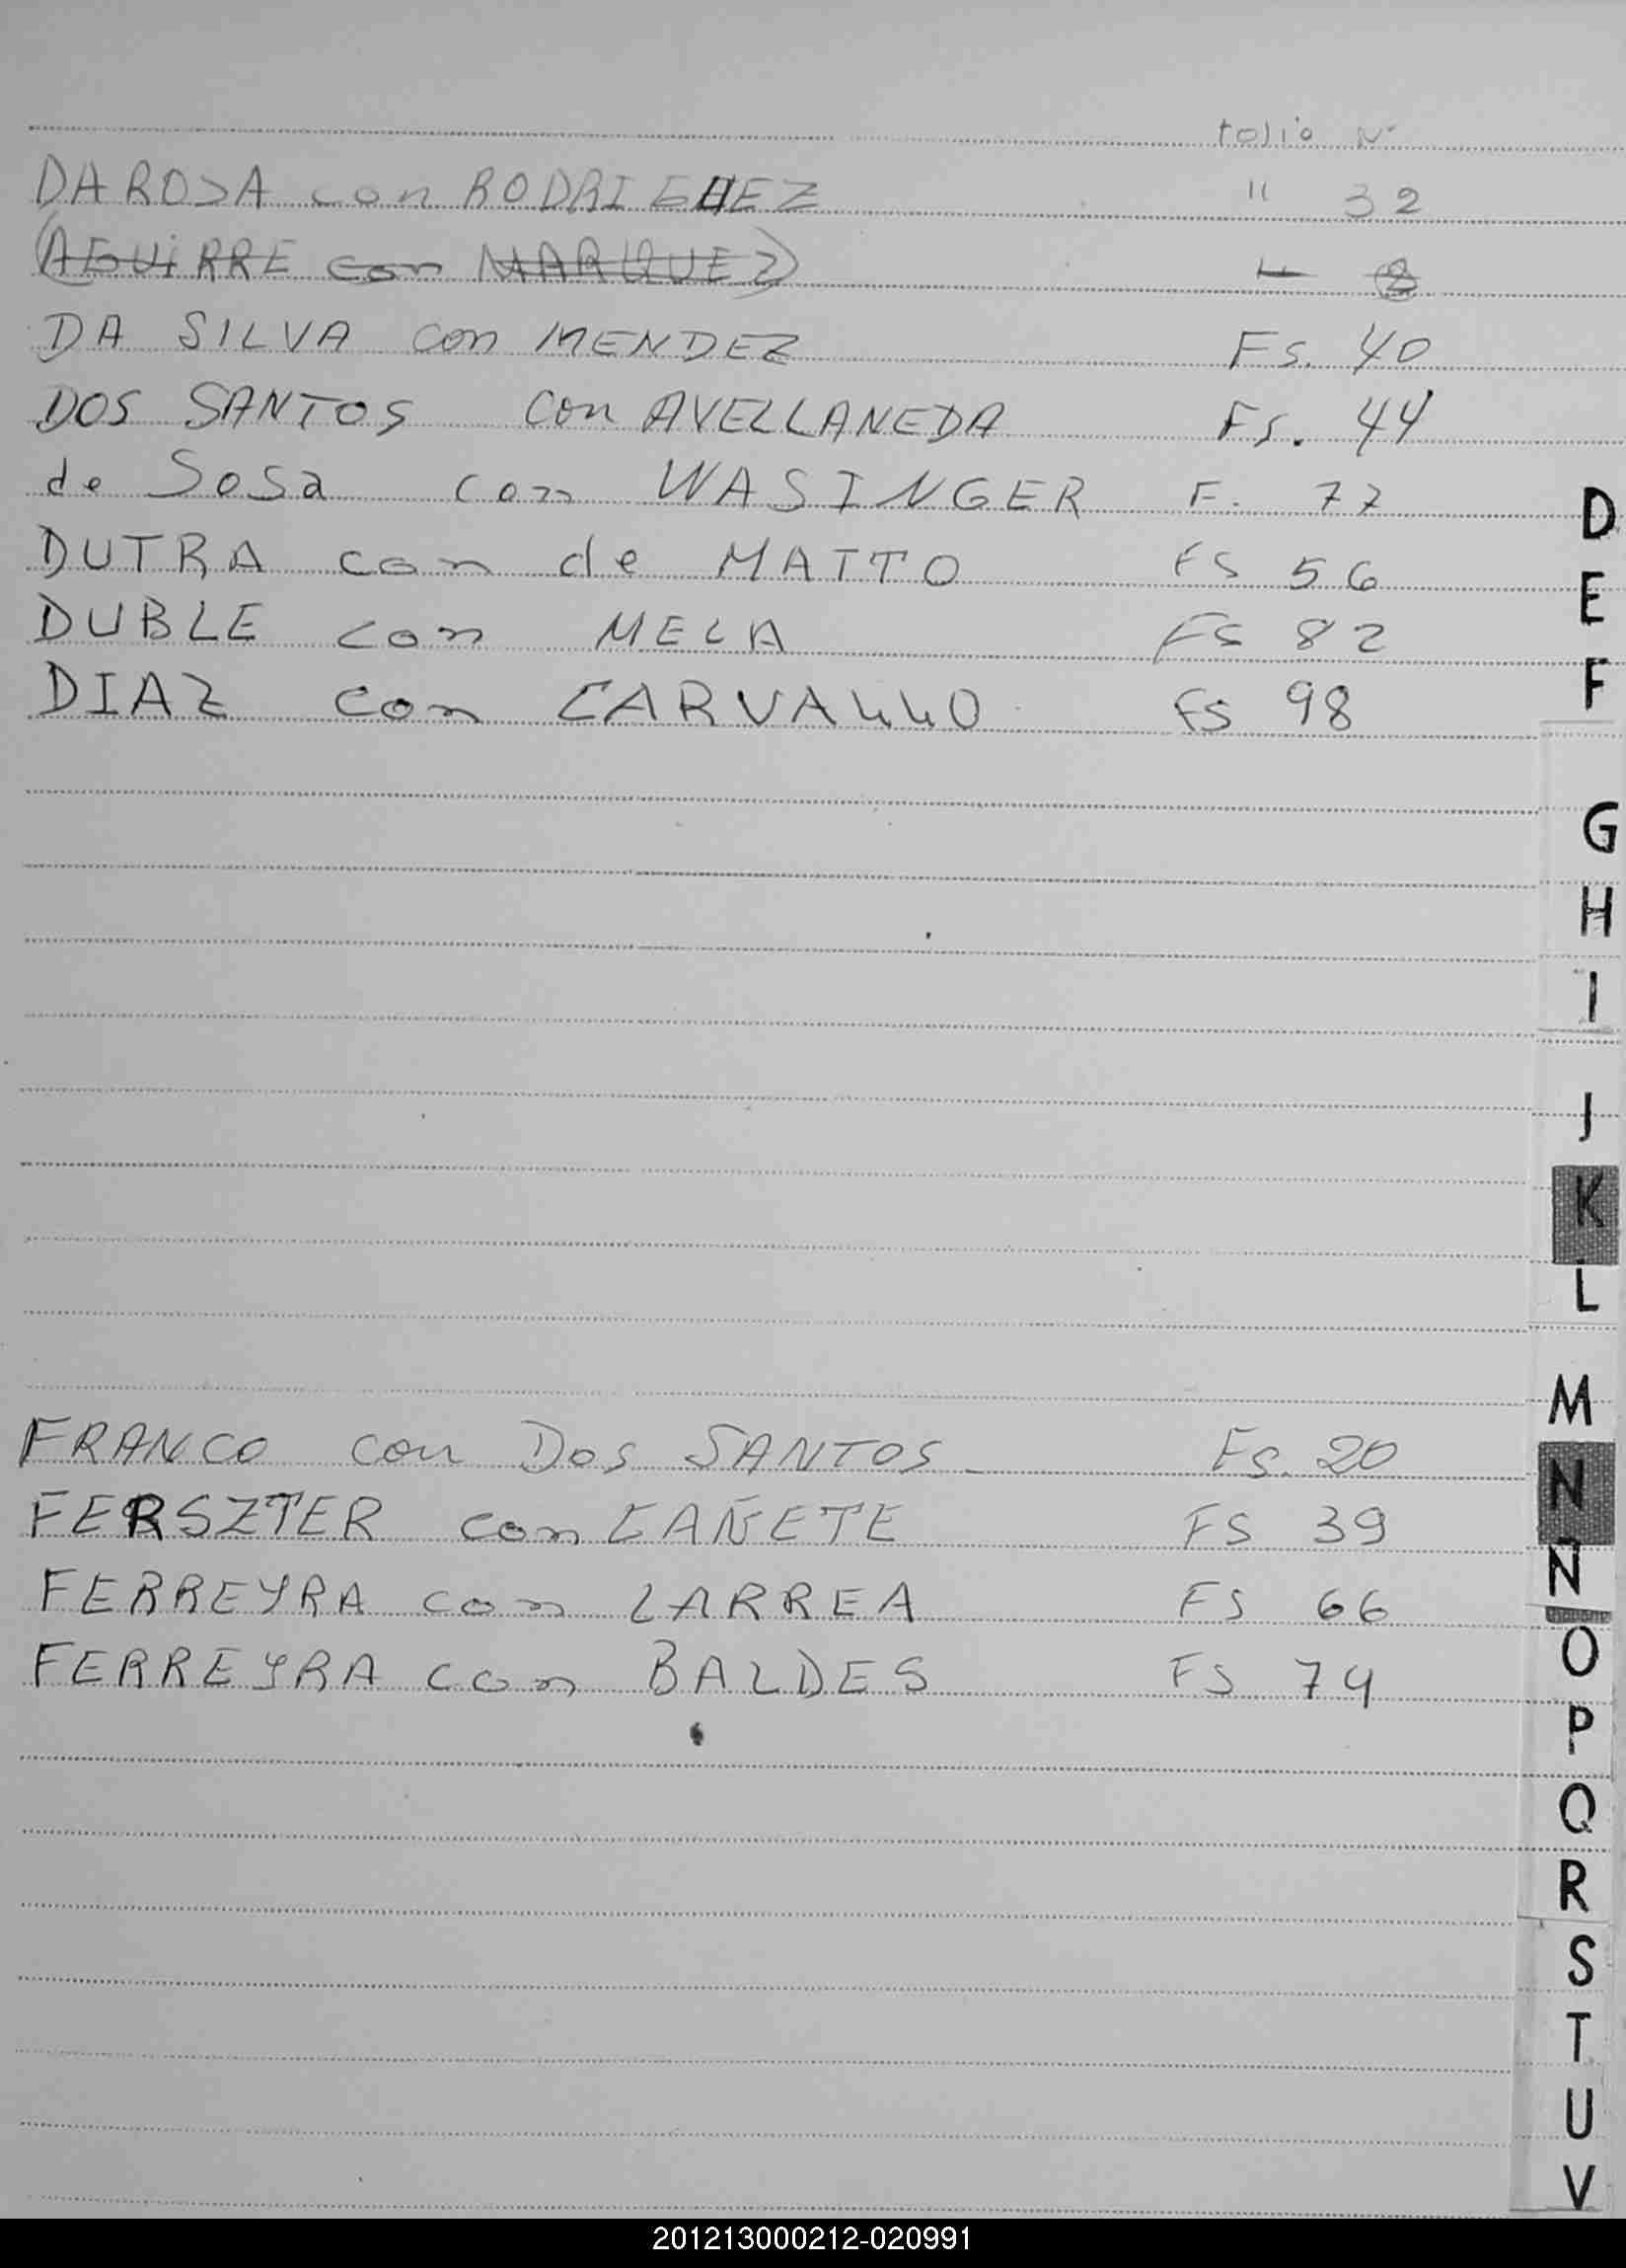 folio Nº
DA ROSA con RODRIGUEZ " 32
(AGUIRRE con MARQUEZ) " 2
DA SILVA con MENDEZ Fs. 40
DOS SANTOS con AVELLANEDA Fs. 44
de Sosa con WASINGER F. 77
DUTRA con de MATTO FS 56
DUBLE con MELA FS 82
DIAZ con CARVALLO FS 98
FRANCO con DOS SANTOS Fs. 20
FERSZTER con CAÑETE FS 39
FERREYRA con LARREA FS 66
FERREYRA con BALDES FS 74
D
E
F
G
H
I
J
K
L
M
N
Ñ
O
P
Q
R
S
T
U
V
201213000212-020991